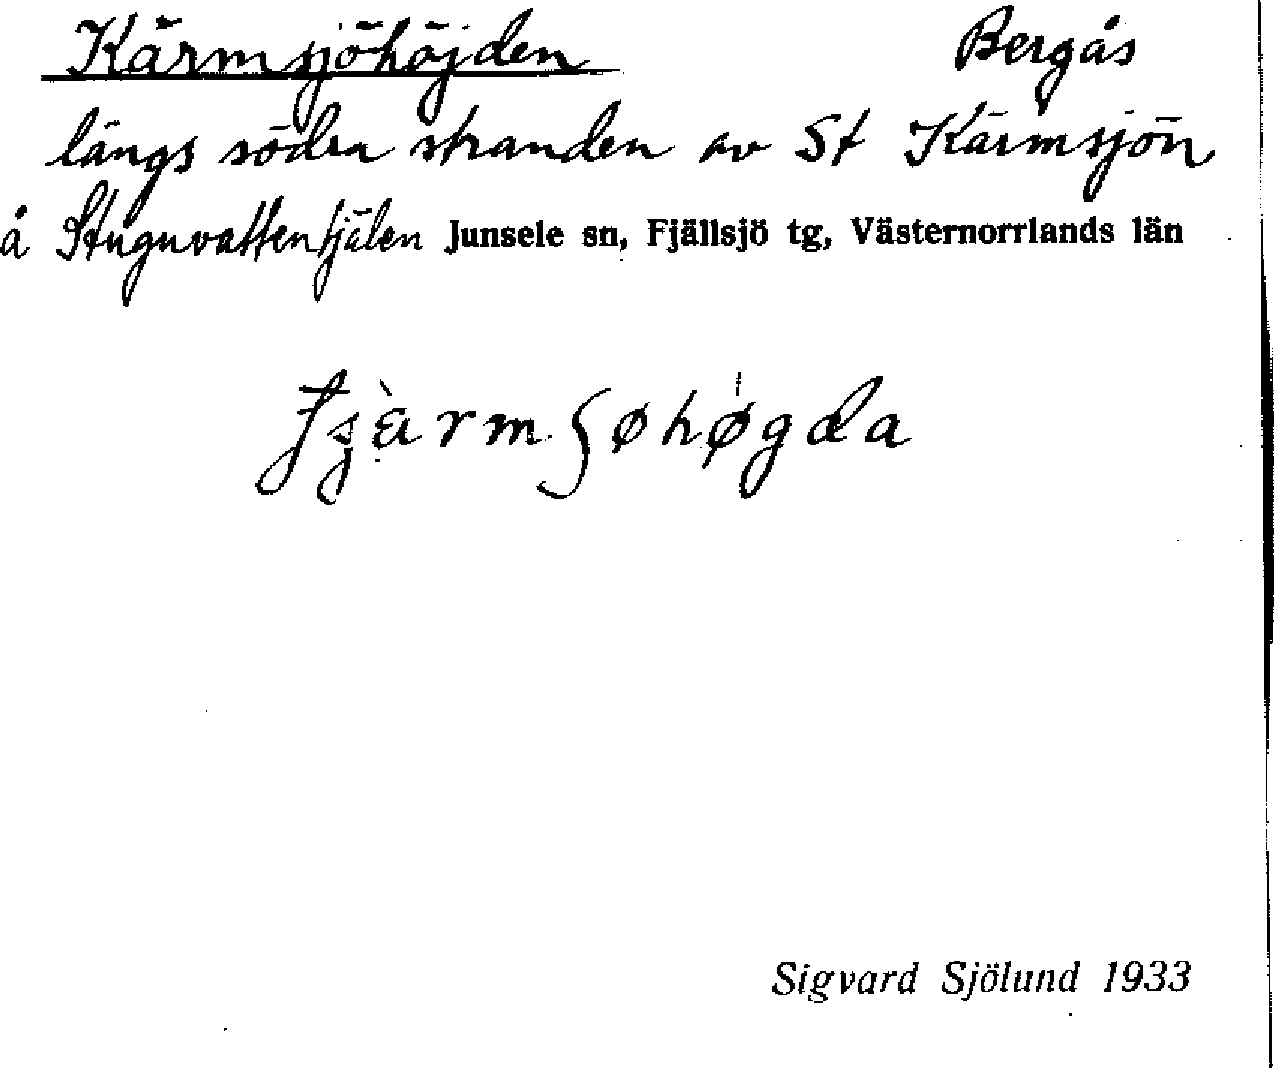 Kärmsjöhöjden Bergås
längs södra stranden av St Kärmsjön
å Stuguvattentjälen Junsele sn, Fjällsjö tg, Västernorrlands län
Sigvard Sjölund 1933